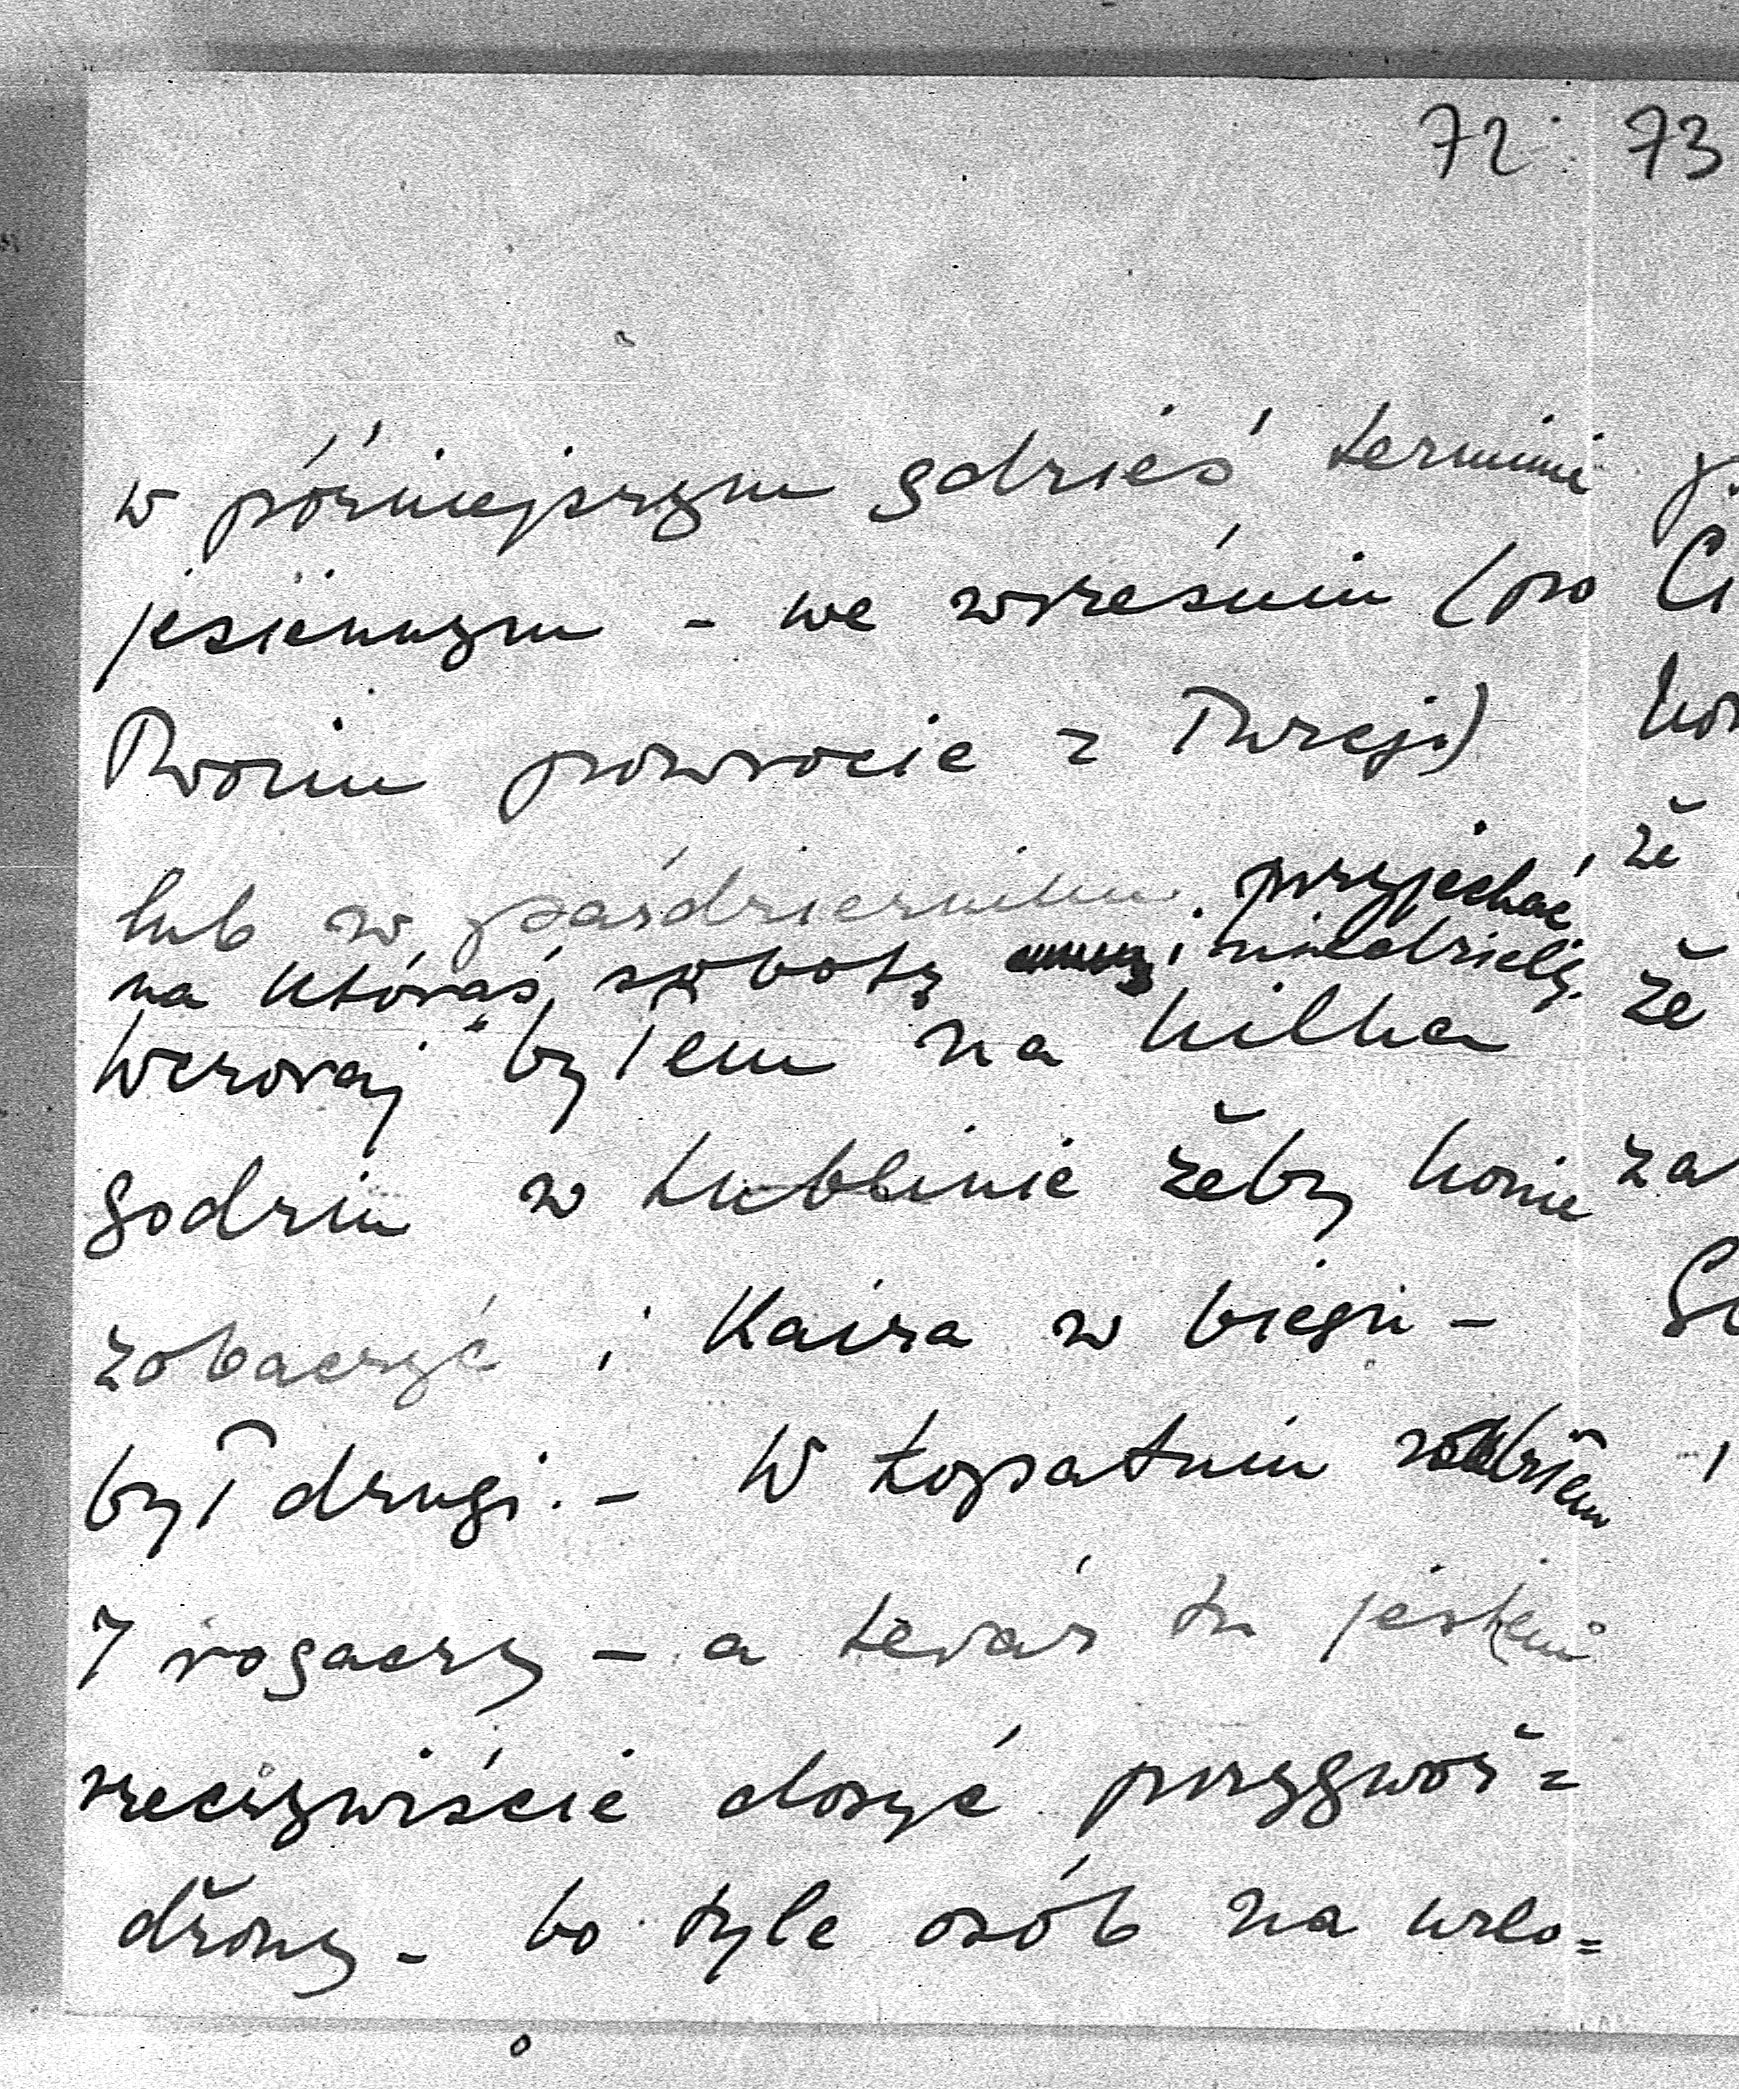 72 73
w późniejszym gdzieś terminie
jesiennym - we wrześniu (po
Twoim powrocie z Turcji)
lub w październiku. przyjechać
na którąś sobotę i niedzielę.
Wczoraj byłem na kilka
godzin w Lublinie żeby konie
zobaczyć i Kaira w biegu -
był drugi. - W Łopatniu
7 rogaczy - a teraz tu jestem
rzeczywiście dosyć przygwoź=
dżony - bo tyle osób na urlo=